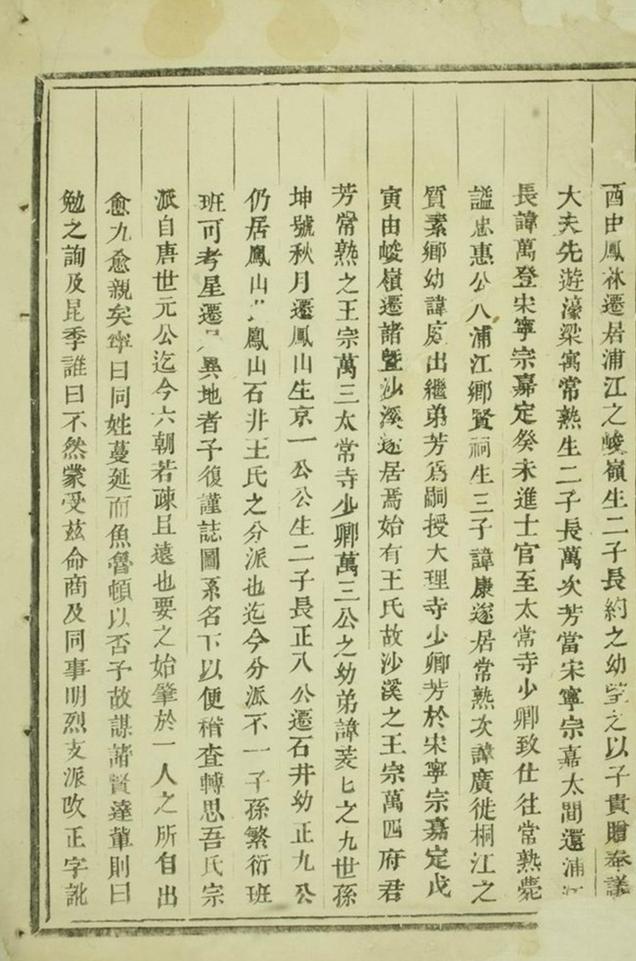 酉由鳳林遷居浦江之峻嶺生二子長約之幼望之以子貴贈奉議
大夫先遊濠梁寓常熟生二子長萬次芳當宋寧宗嘉太間還浦江
長諱萬登宋寧宗嘉定癸未進士官至太常寺少卿致仕往常熟薨
謚忠惠公入浦江鄉賢祠生三子諱康遂居常熟次諱廣徙桐江之
質素鄉幼諱出繼弟芳爲嗣授大理寺少卿芳於宋寧宗嘉定戊
寅由峻嶺遷諸暨沙溪遂居焉始有王氏故沙溪之王宗萬四府君
芳常熟之王宗萬三太常寺少卿萬三公之幼弟諱菱七之九世孫
坤號秋月遷鳳山生京一公公生二子長正八公遷石井幼正九公
仍居鳳山鳳山石井王氏之分派也迄今分派不一子孫繁衍班
班可考星遷異地者予復謹誌圖系名下以便稽查轉思吾氏宗
派自唐世元公迄今六朝若疎且遠也要之始肇於一人之所自出
愈九愈親矣寧曰同姓蔓延而魚魯頓以否予故謀諸賢達輩則曰
勉之詢及昆季誰曰不然蒙受茲命商及同事明烈支派改正字訛